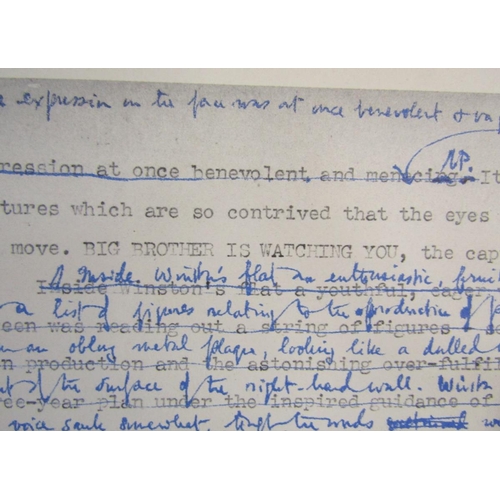 expression on the face was at once benevolent &
N.P.
ression at once benevolent and menacing. It
tures which are so contrived that the eyes
move. BIG BROTHER IS WATCHING YOU, the cap
Inside Winston's flat an enthusiastic, fruit
Inside Winston's flat a youthful, eager
a list of figures relating to the production of
een was reading out a string of figures
an oblong metal plaque, looking like a dulled
n production and the astonishing over-fulfil
of the surface of the right-hand wall. Winston
ee-year plan under the inspired guidance of
voice sank somewhat, though the words